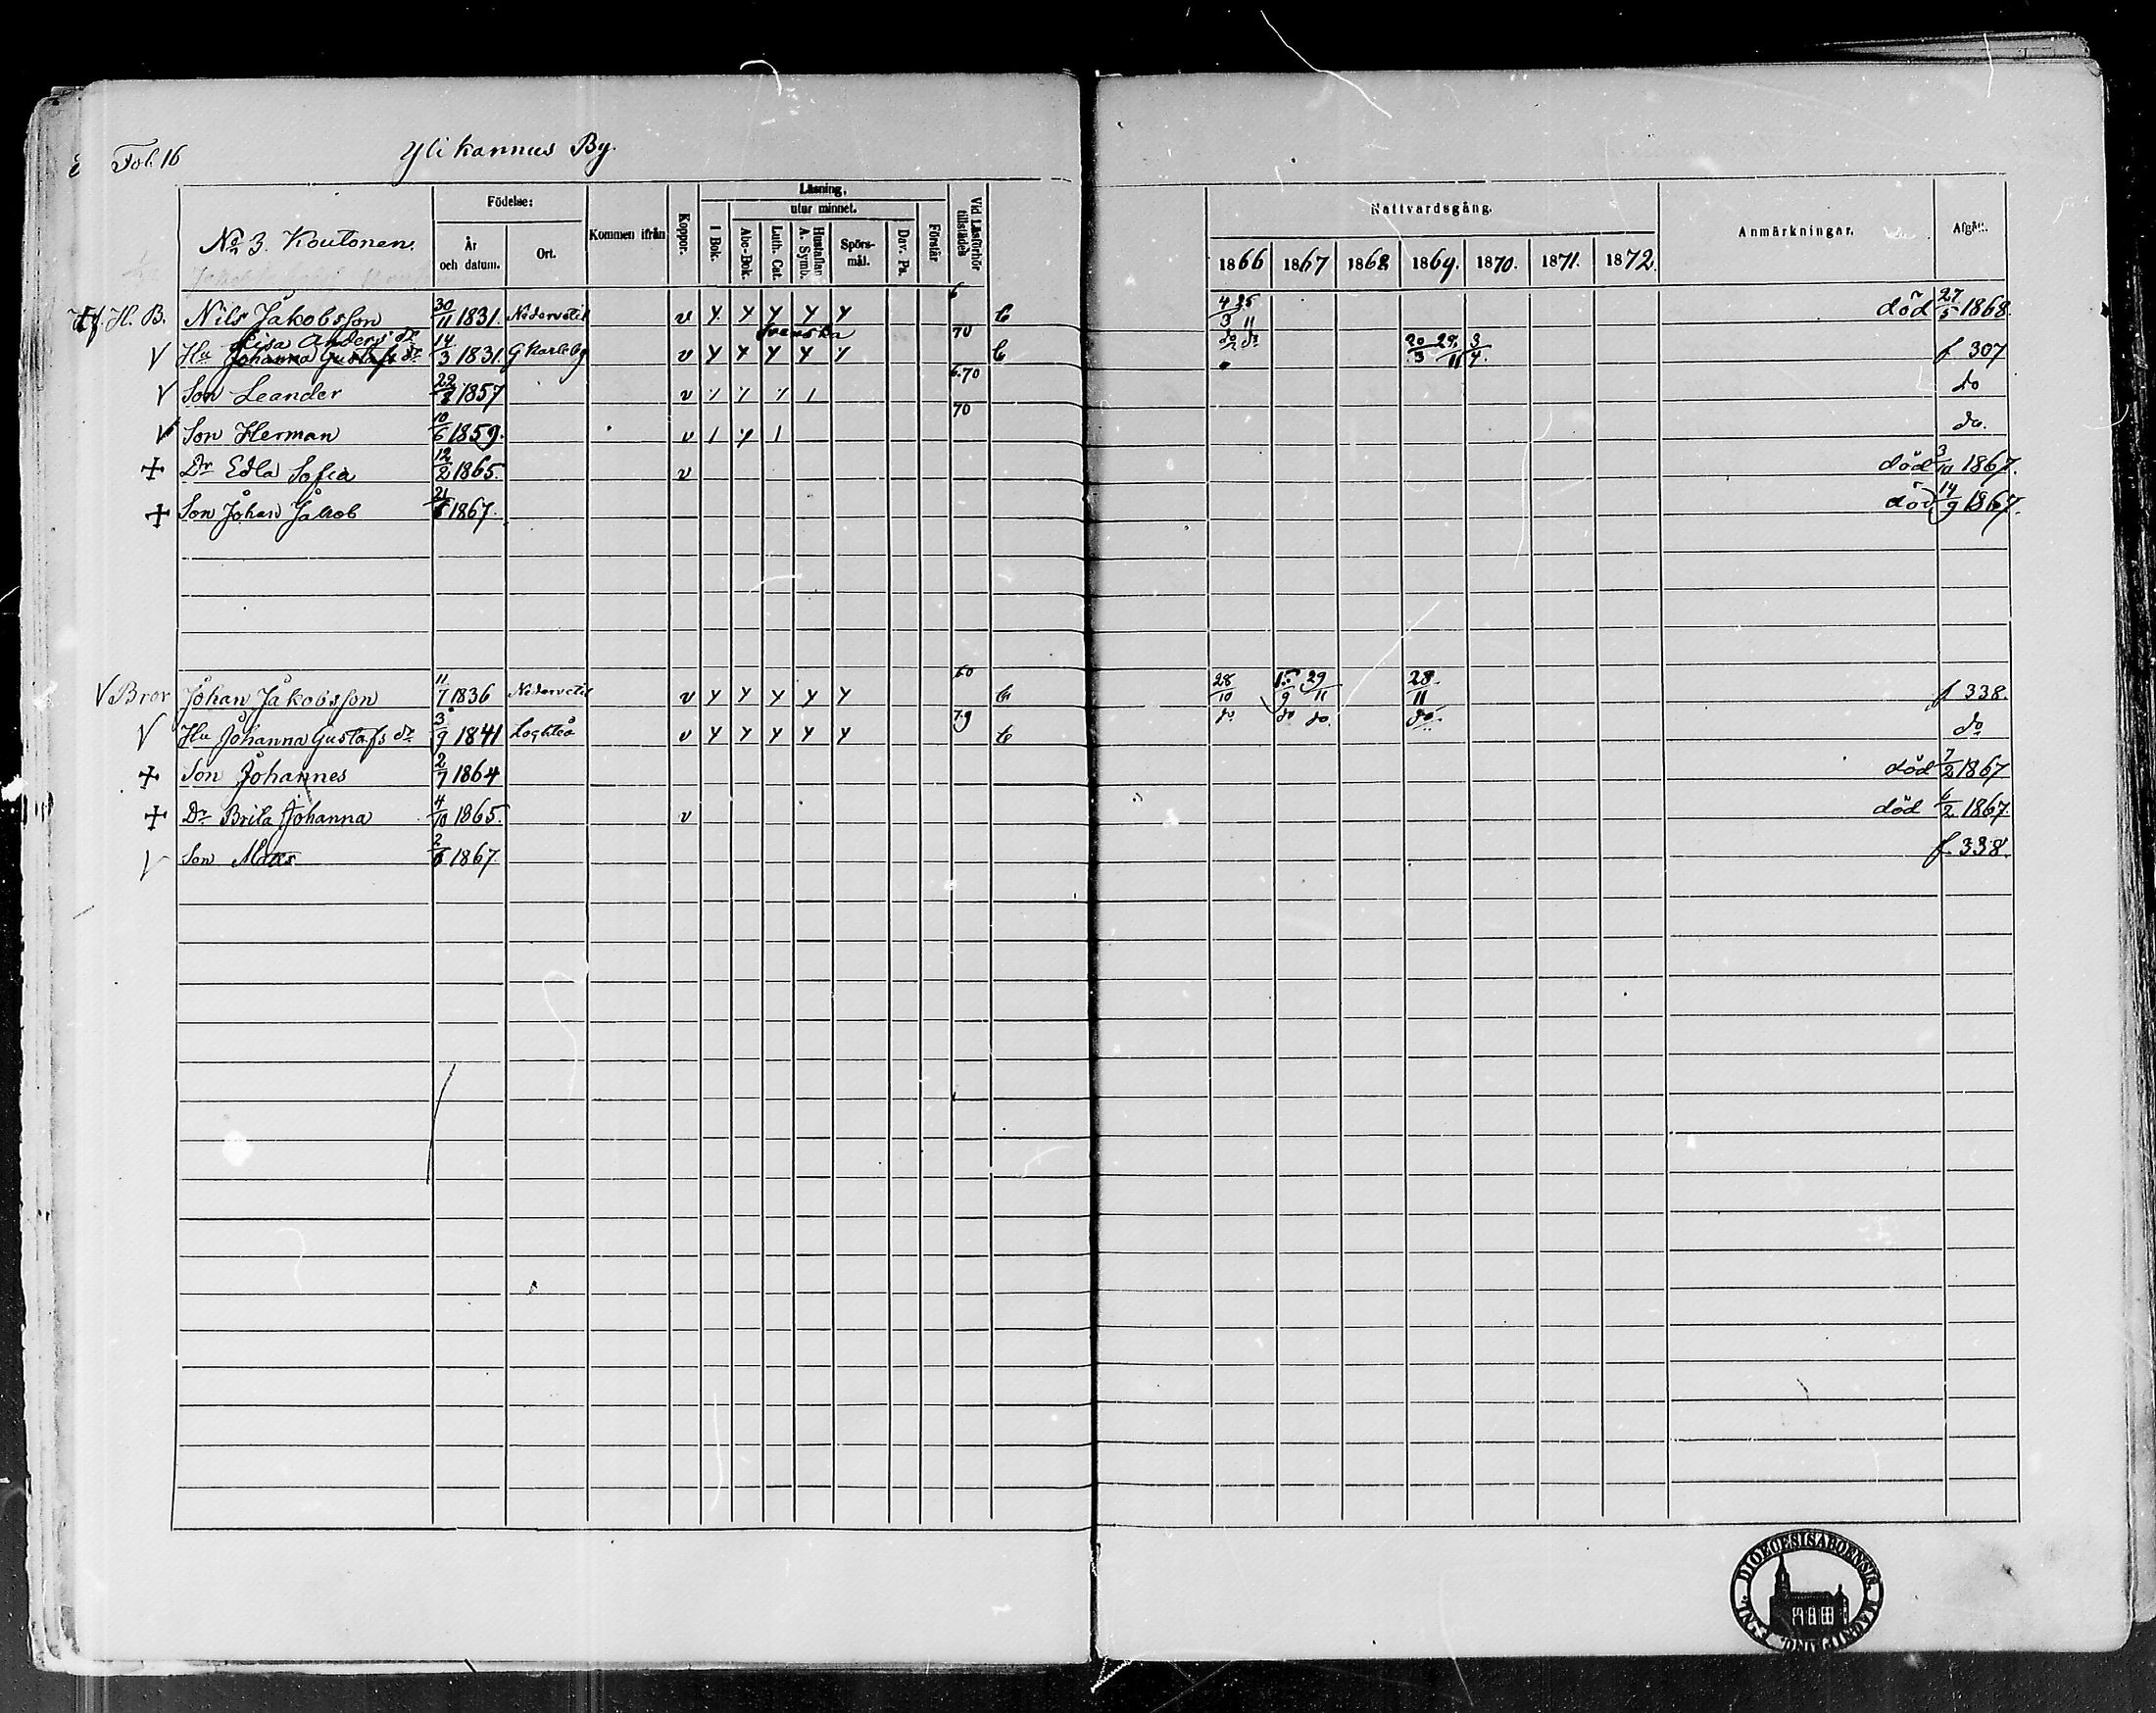 Fol. 16 Ylikannus By.
No 3. Koutonen.
Födelse: År och datum. Ort. Kommen ifrån Koppor. Läsning, I Bok. utur minnet. Abc-Bok. Luth. Cat. Hustaflan A. Symb. Spörs-mål. Dav. Ps. Förstår Vid Läsförhör tillstädes Nattvardsgång. 1866 1867 1868 1869. 1870. 1871. 1872. Anmärkningar. Afgått.
H. B. Nils Jakobsson 30/11 1831. Nedervetil v Y Y Y Y Y 6 4/3 25/11 död 27/5 1868.
Lisa Anders dr Svenska
V Hu Johanna Gustafs dr 14/3 1831. G Karleby v Y Y Y Y Y 70 do do 20/3 29/11 3/4. f 307
V Son Leander 1857 v 6.70 do
V Son Herman 10/6 1859. v 70 do.
+ Dr Edla Sofia 12/2 1865. v död 3/10 1867.
+ Son Johan Jakob 1867. död 14/9 1867.
V Bror Johan Jakobsson 11/7 1836 Nedervetil v Y Y Y Y Y 60 28/10 15/9 29/11 28/11 f 338.
V Hu Johanna Gustafs dr 3/9 1841 Lochteå v Y Y Y Y Y 7.9 do do do. do. do
+ Son Johannes 2/7 1864 död 7/2 1867
+ Dr Brita Johanna 4/10 1865. v död 6/2 1867.
V Son 1867. f 338.
DIOECESIS ABOENSIS